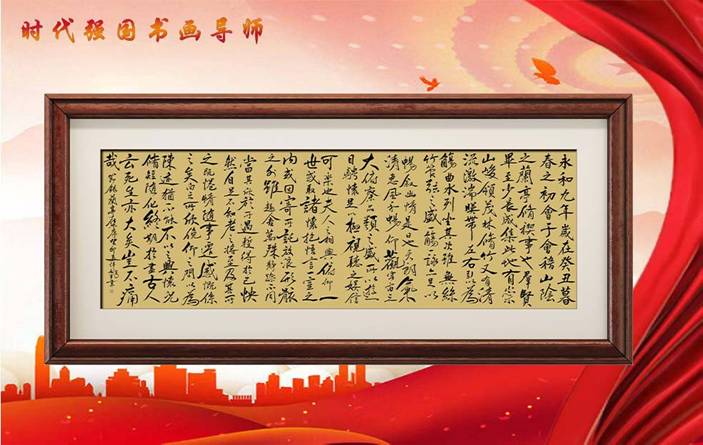 时代强国书画导师
永和九年歲在癸丑暮
春之初會于會稽山陰
之蘭亭脩稧事也羣賢
畢至少長咸集此地有崇
山峻領茂林脩竹又有清
流激湍暎帶左右引以為
觴曲水列坐其次雖無絲
竹管弦之盛一觴一詠亦足以
暢叙幽情是日也天朗氣
清惠風和暢仰觀宇宙之
大俯察品類之盛所以遊
目騁懷足以極視聽之娛信
可樂也夫人之相與俯仰一
世或取諸懷抱悟言一室之
内或因寄所託放浪形骸
之外雖趣舍萬殊靜躁不同
當其欣於所遇暫得於己怏
然自足不知老之將至及其所
之既惓情隨事遷感慨係
之矣向之所欣俛仰之間以為
陳迹猶不能不以之興懷況
脩短隨化終期於盡古人
云死生亦大矣豈不痛
哉